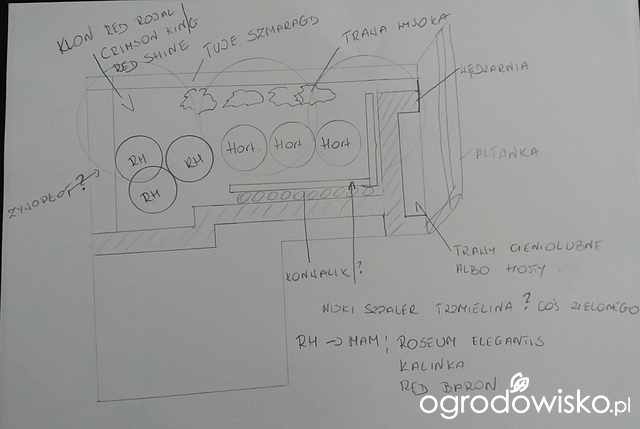 KLON RED ROJAL/
CRIMSON KING
RED SHINE
TUJE SZMARAGD
TRAWA WYSOKA
WĘDZARNIA
ALTANKA
ŻYWOPŁOT?
RH
RH
RH
Hort.
Hort
Hort
KONWALIK?
TRAWY CIENIOLUBNE
ALBO HOSTY
NISKI SZPALER TRZMIELINA? COŚ ZIELONEGO
RH → MAM: ROSEUM ELEGANTIS
KALINKA
RED BARON
ogrodowisko.pl